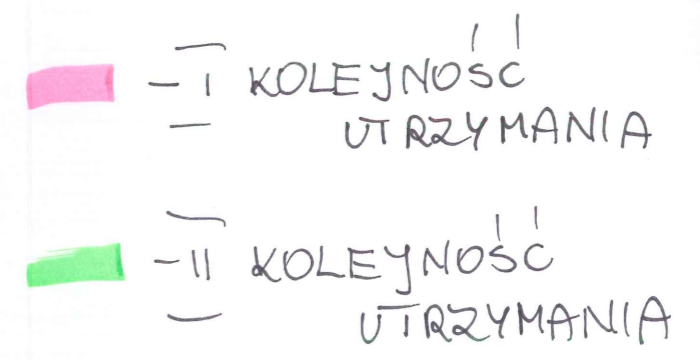 - I KOLEJNOŚĆ
UTRZYMANIA
- II KOLEJNOŚĆ
UTRZYMANIA